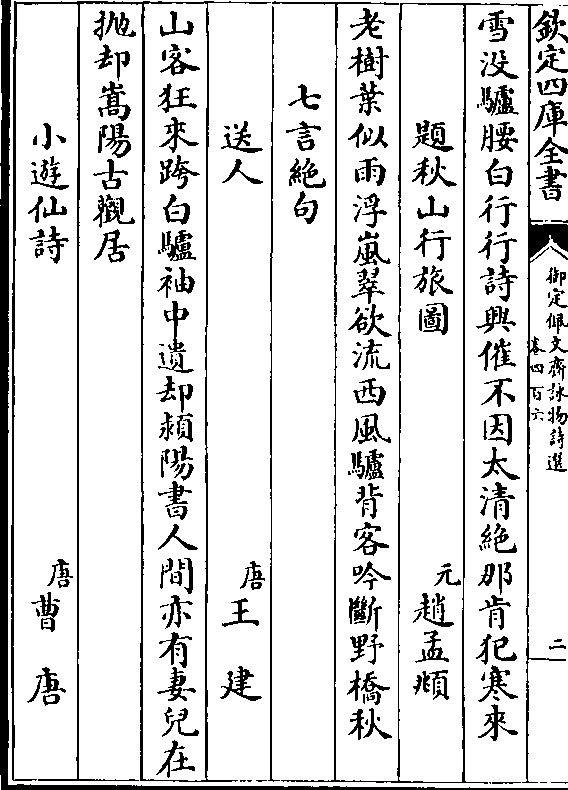 欽定四庫全書
御定佩文齋詠物詩選
卷四百六
二
雪没驢腰白行行詩興催不因太清絶那肯犯寒來
題秋山行旅圖
元趙孟頫
老樹葉似雨浮嵐翠欲流西風驢背客吟斷野橋秋
七言絶句
送人
唐王建
山客狂來跨白驢袖中遺却頴陽書人間亦有妻兒在
抛却嵩陽古觀居
小遊仙詩
唐曹唐